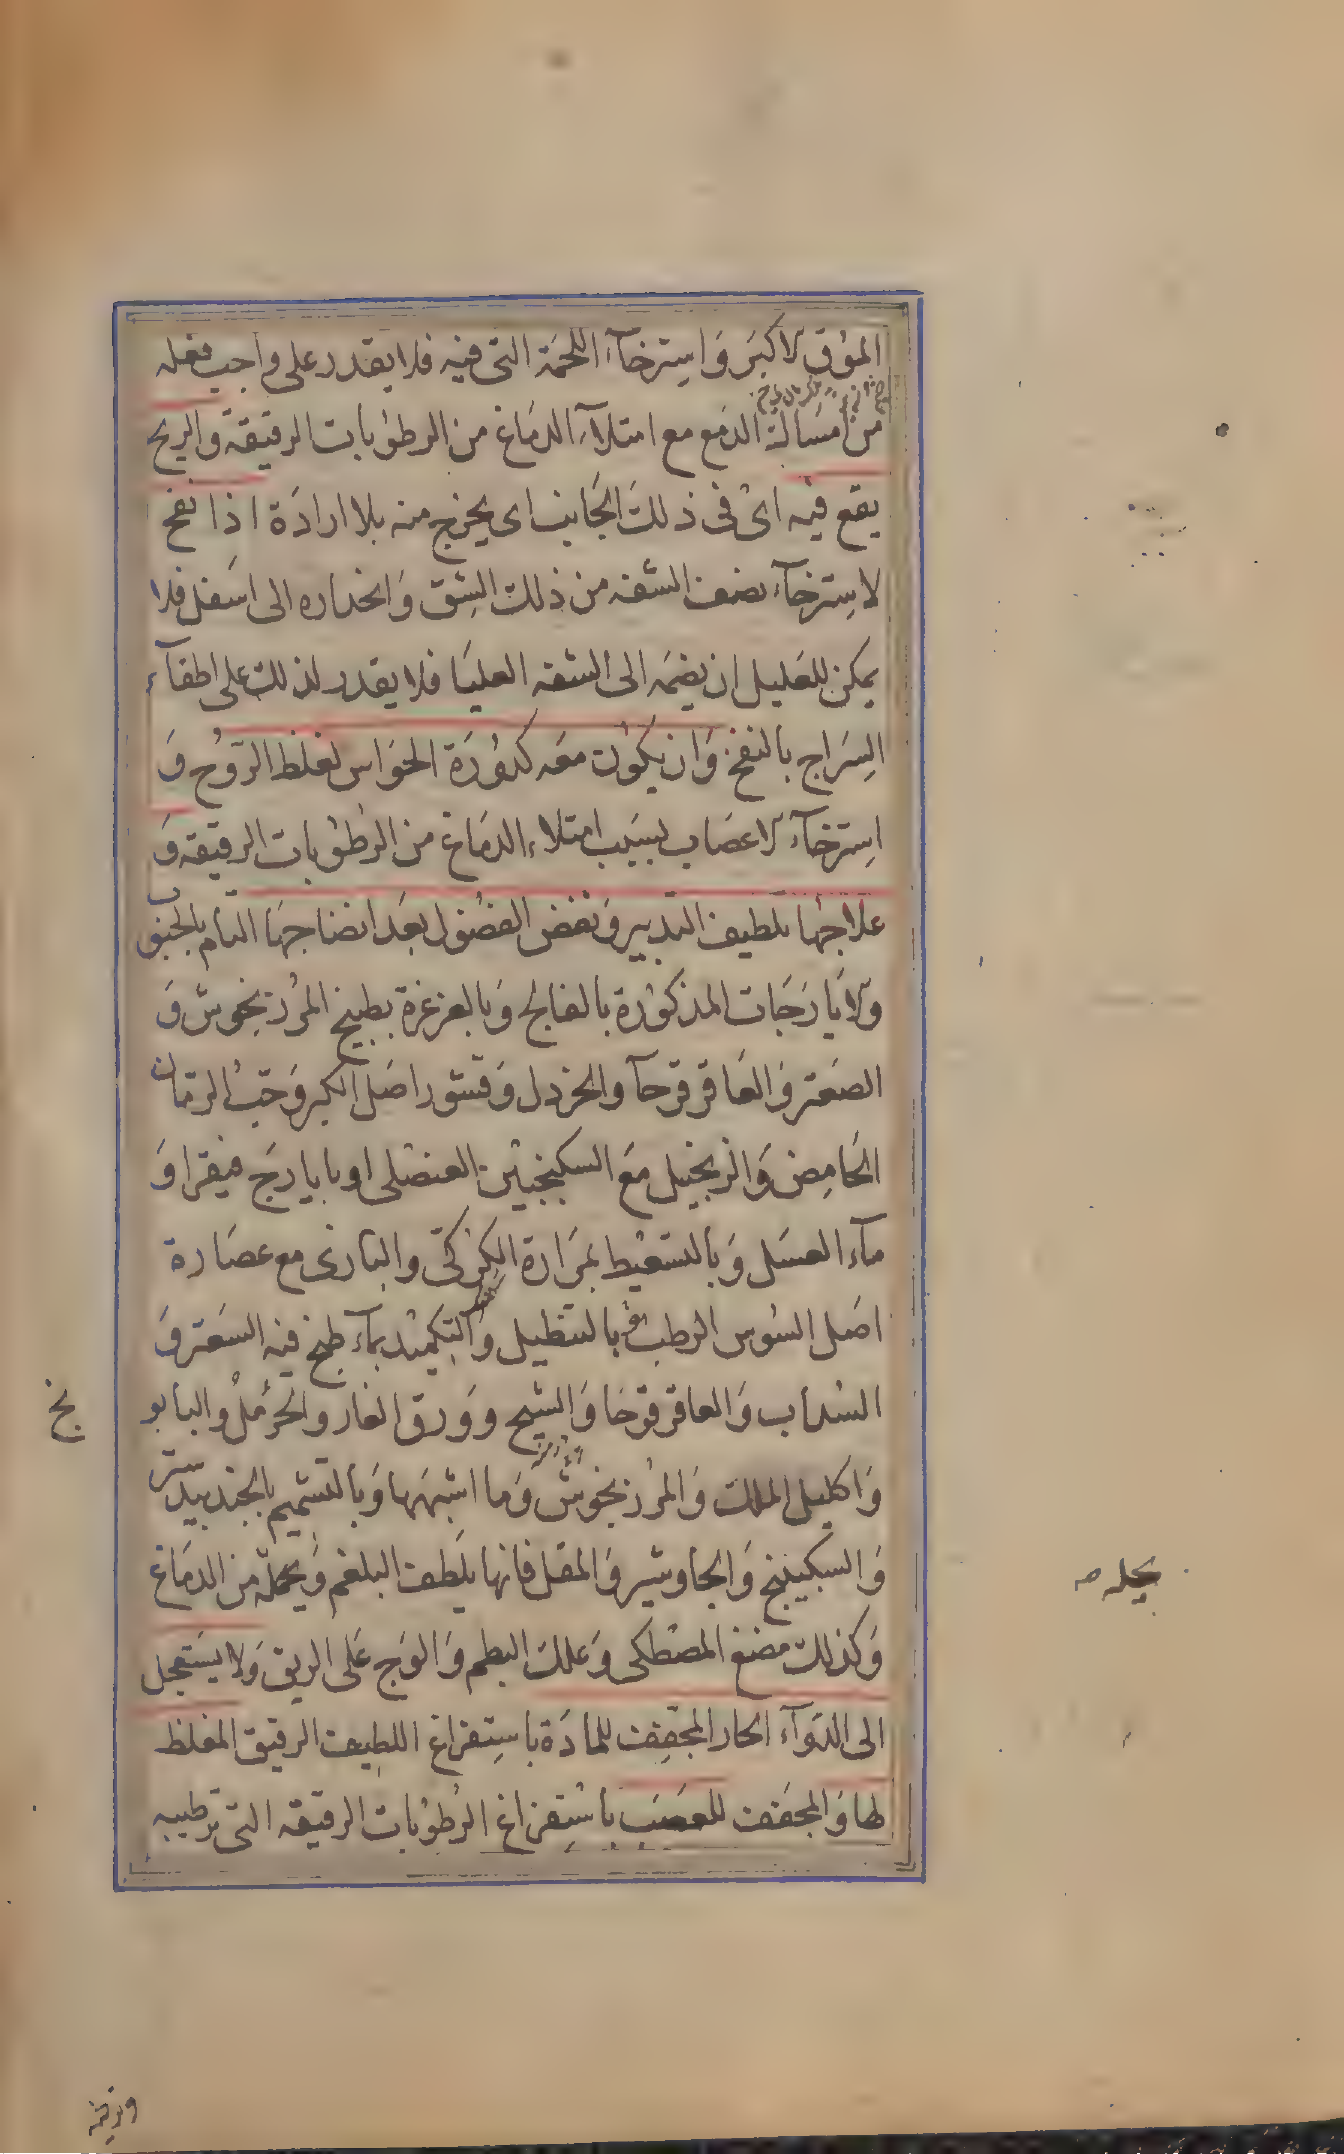 المؤق الاكبر وَاسِترخآء اللحمَة التى فيه فلا يقدر على واجب فعله
من امسَاك الدمع مع امتلآء الدمَاغ من الرطوُبات الرقيقة والريح
يقع فيه اىْ فى ذلك الجَانب اى يخرج منه بلا ارادَة اذا نفخ
لاسِترخآء نصف الشفه من ذلك الشِق وَانحداره الى اسَفل فلا
يمكن للعَليل ان يضمَه الى الشفه العليَا فلا يقدر لذلك على اطفآء
السِرَاج بالنفخ وَان يكوُن معَه كدوُرَة الحَوَاس لغلظ الرّوُح وَ
اسِترخآء الاعصَاب لسبَب امتلاء الدمَاغ من الرطوُبات الرقيقه وَ
علاجهُا تلطيف التدبير وَنفض الفضوُل بعَد انضاجهَا التام بالحبوب
والايَارَجَات المذكوُرة بالفالج وَبالغرغرة بطبيخ المرُزنجوش وَ
الصعَتر وَالعَاقرقرحآ والخردل وَقشور اصَل الكبر وَحَبُ الرمّان
الحَامِض وَالزنجبيل معَ السكنجبين العنصُلى او بايارَج فيقرا وَ
مآء العسَل وَبالتسعيط بمرَارة الكرُكىّ والبازى مع عصَارة
اصَل السُوس الرطب وَبالتنطيل وَالتكميد بمآء طبخ فيه السَعتر وَ
السُداب وَالعاقرقرحَا وَالشيح وَوَرق الغار والحَرمُل والبابو
نج
وَاكليل الملك وَالمرُزنجوش وَما اشبهَها وَبالتشميم بالجندبيدستر
وَالسكبينج وَالجاوشير وَالمقل فانها يلَطف البلغم وَيحلله من الدمَاغ
يحلله صح
وَكذلك مضغ المصُطكى وَعلك البطم وَالوَج عَلى الريق وَلا يسَتعجل
الى الدَوآء الحار المجَفِف للمادَة باسِتفراغ اللطيف الرقيق المغلظ
لها وَالمجَفف للعصَب باسُتِفراغ الرطوُبات الرقيقه التى ترطيبه